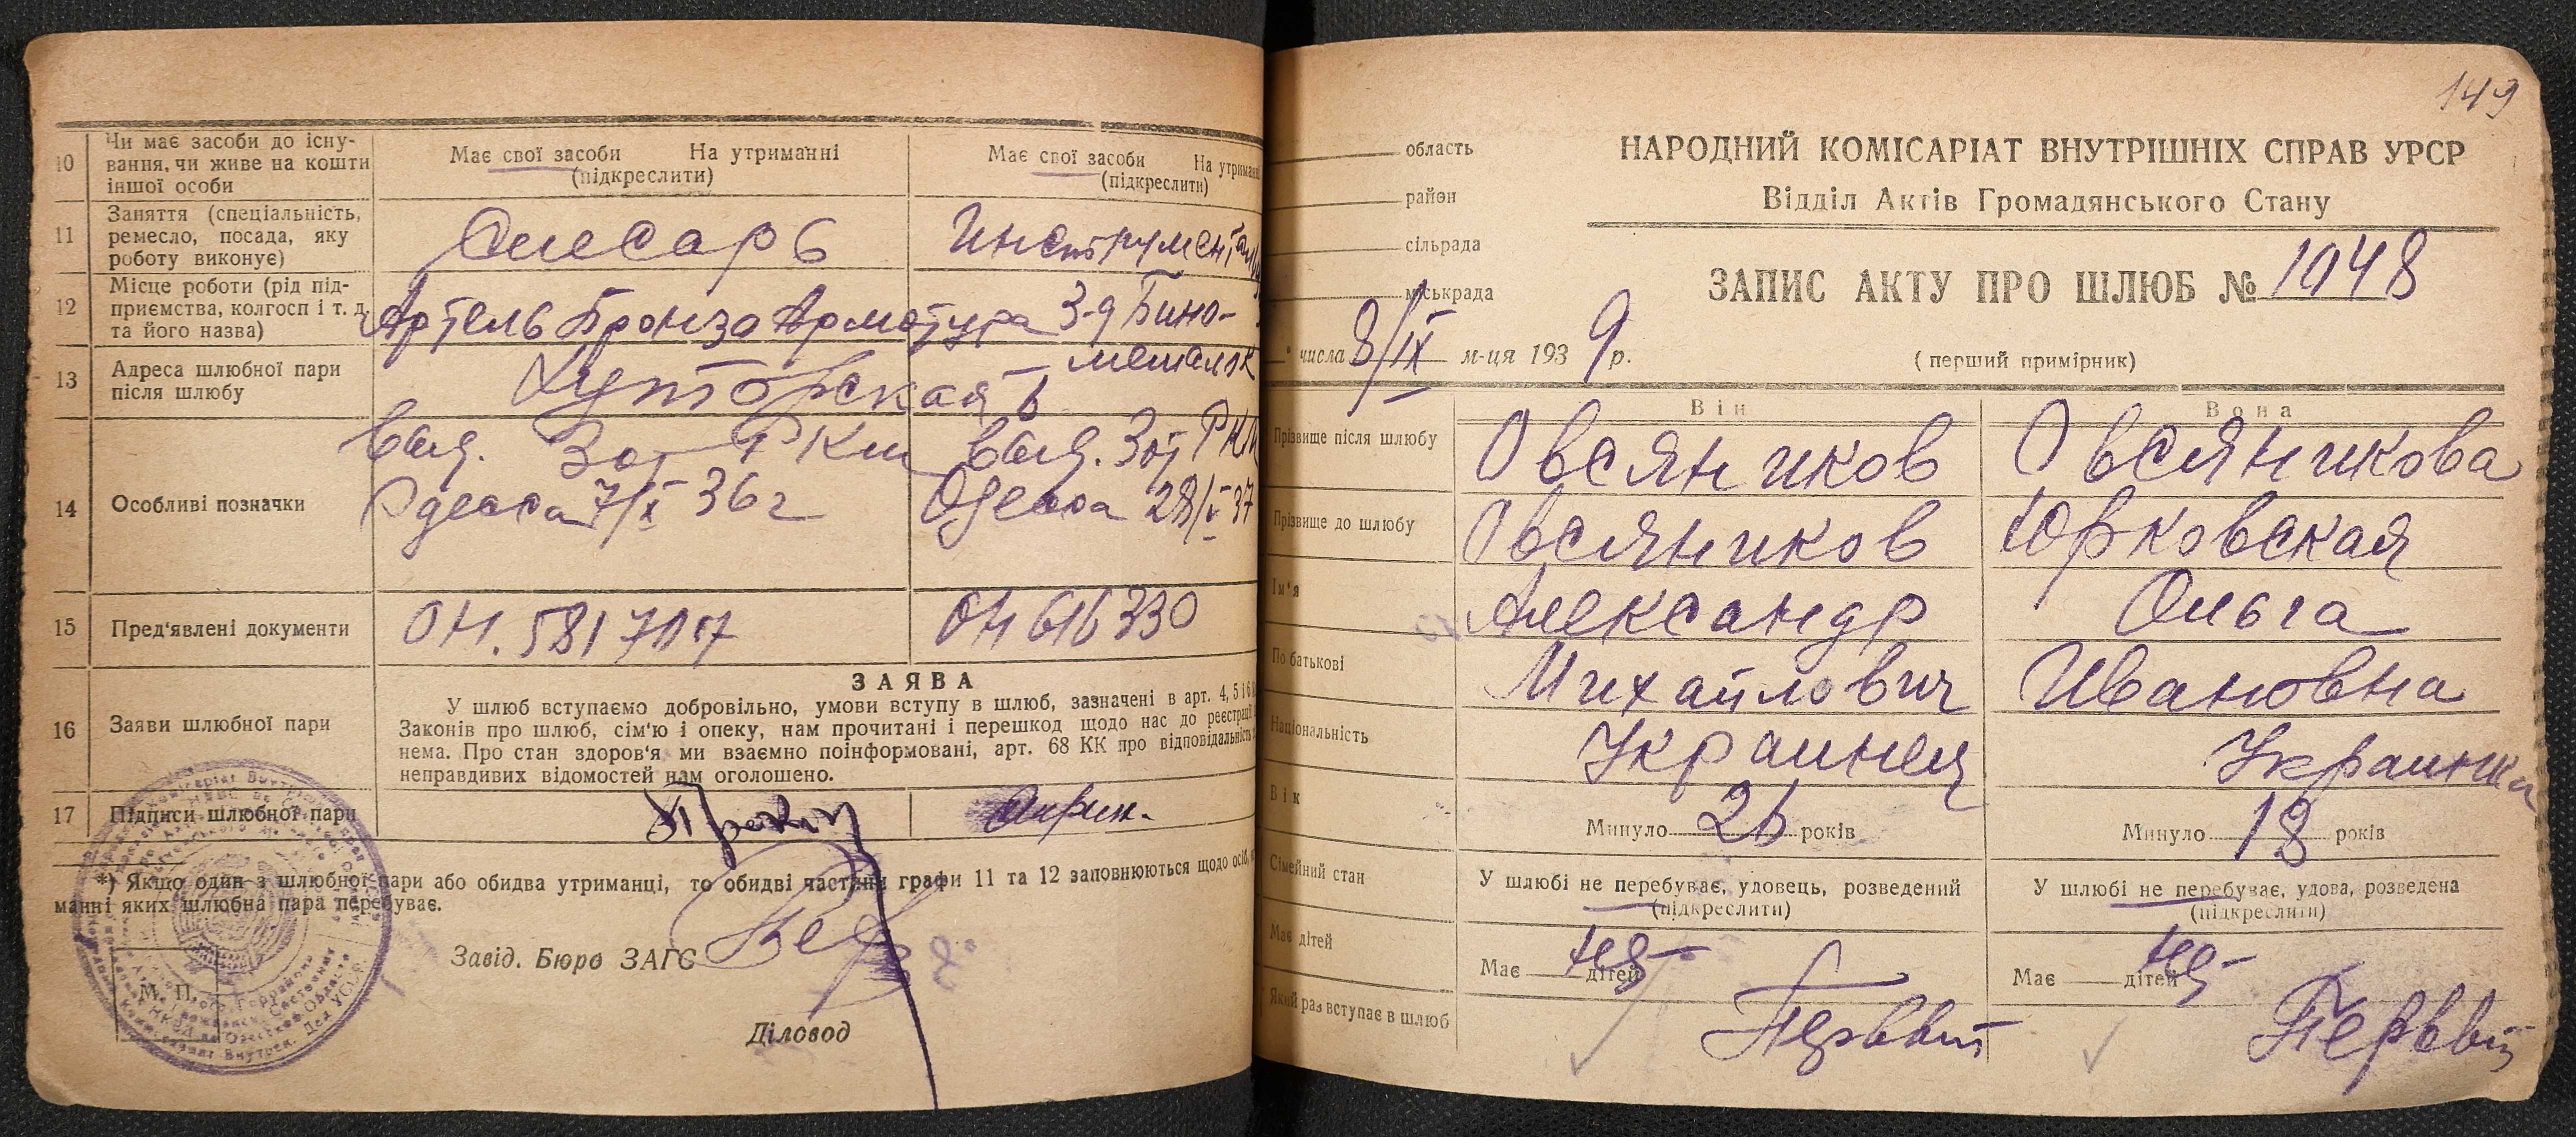 10 Чи має засоби до існу-
вання, чи живе на кошти
іншої особи
Має свої засоби На утриманні
(підкреслити)
Має свої засоби На утриманні
(підкреслити)
11 Заняття (спеціальність,
ремесло, посада, яку
роботу виконує)
Слесарь
12 Місце роботи (рід під-
приємства, колгосп і т. д.
та його назва)
Артель Бронзо Арматура
З-д Бино-
металок
13 Адреса шлюбної пари
після шлюбу
Хуторская
14 Особливі позначки
выд. 3 от РКМ
Одесса 7/X 36 г
выд. 3 от РКМ
Одесса 28/V 37
15 Пред'явлені документи
ОН. 581707
ОН 616330
16 Заяви шлюбної пари
ЗАЯВА
У шлюб вступаємо добровільно, умови вступу в шлюб, зазначені в арт. 4, 5 і 6
Законів про шлюб, сім'ю і опеку, нам прочитані і перешкод щодо нас до реєстрації
нема. Про стан здоров'я ми взаємно поінформовані, арт. 68 КК про відповідальність
неправдивих відомостей нам оголошено.
17 Підписи шлюбної пари
*) Якщо один з шлюбної пари або обидва утриманці, то обидві частини графи 11 та 12 заповнюються щодо осіб,
манні яких шлюбна пара перебуває.
Завід. Бюро ЗАГС
М. П.
Діловод
149
область
район
сільрада
міськрада
НАРОДНИЙ КОМІСАРІАТ ВНУТРІШНІХ СПРАВ УРСР
Відділ Актів Громадянського Стану
ЗАПИС АКТУ ПРО ШЛЮБ № 1048
" числа 8/IX м-ця 1939 р.
(перший примірник)
Він Вона
Прізвище після шлюбу Овсяников Овсяникова
Прізвище до шлюбу Овсяников Юрковская
Ім'я Александр Ольга
По батькові Михайлович Ивановна
Національність Украинец Украинка
Вік Минуло 26 років Минуло 18 років
Сімейний стан У шлюбі не перебуває, удовець, розведений
(підкреслити)
У шлюбі не перебуває, удова, розведена
(підкреслити)
Має дітей Має нет дітей Має нет дітей
Який раз вступає в шлюб Первый Первый